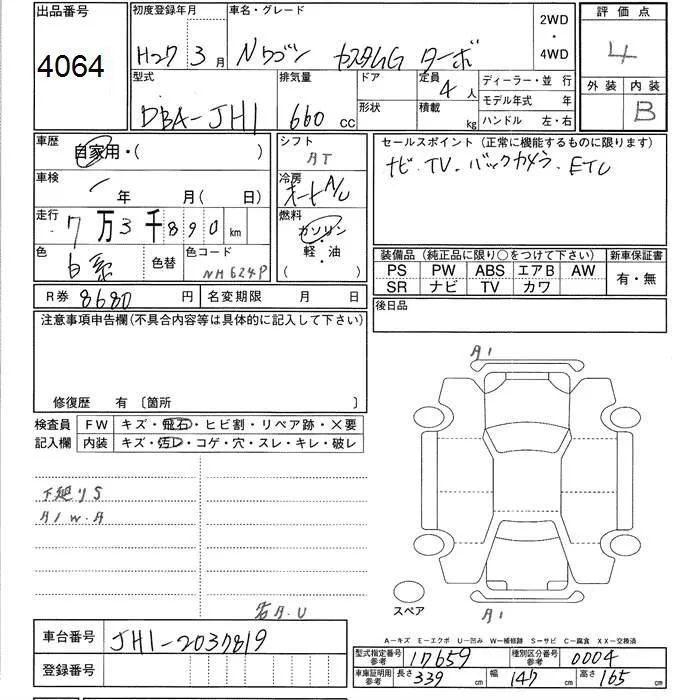 出品番号
4064
初度登録年月
H27 3 月
車名・グレード
Nワゴン カスタムG ターボ
2WD
・
4WD
評価点
4
型式
DBA-JH1
排気量
660 cc
ドア
形状
定員
4 人
積載
kg
ディーラー・並 行
モデル年式 年
ハンドル 左・右
外装 内装
B
車歴
自家用・( )
車検
年 月( 日)
走行
7 万 3 千 8 9 0 km
色
白系
色替
色コード
NH624P
シフト
AT
冷房
オートA/C
燃料
ガソリン
・
軽・油
( )
セールスポイント(正常に機能するものに限ります)
ナビ.TV.バックカメラ.ETC
装備品(純正品に限り○をつけて下さい)
PS PW ABS エアB AW
SR ナビ TV カワ
新車保証書
有・無
R券 8680 円 名変期限 月 日
後日品
注意事項申告欄(不具合内容等は具体的に記入して下さい)
修復歴 有 〔箇所 〕
検査員
記入欄
FW キズ・飛石・ヒビ割・リペア跡・×要
内装 キズ・汚レ・コゲ・穴・スレ・キレ・破レ
下廻りS
A1
A1
スペア
A-キズ E-エクボ U-凹み W-補修跡 S-サビ C-腐食 XX-交換済
車台番号 JH1-2037819
登録番号
型式指定番号
参考
17659
種別区分番号
参考
0004
車庫証明用
参考
長さ 339 cm 幅 147 cm 高さ 165 cm